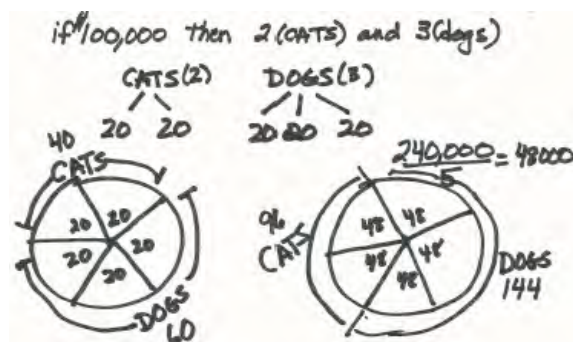 if $100,000 then 2(CATS) and 3(dogs)
CATS(2) DOGS(3)
20 20 20 20 20
40
CATS
20 20
20 20
20
DOGS
60
240,000 = 48000
5
96
CATS
48 48
48 48
48
DOGS
144